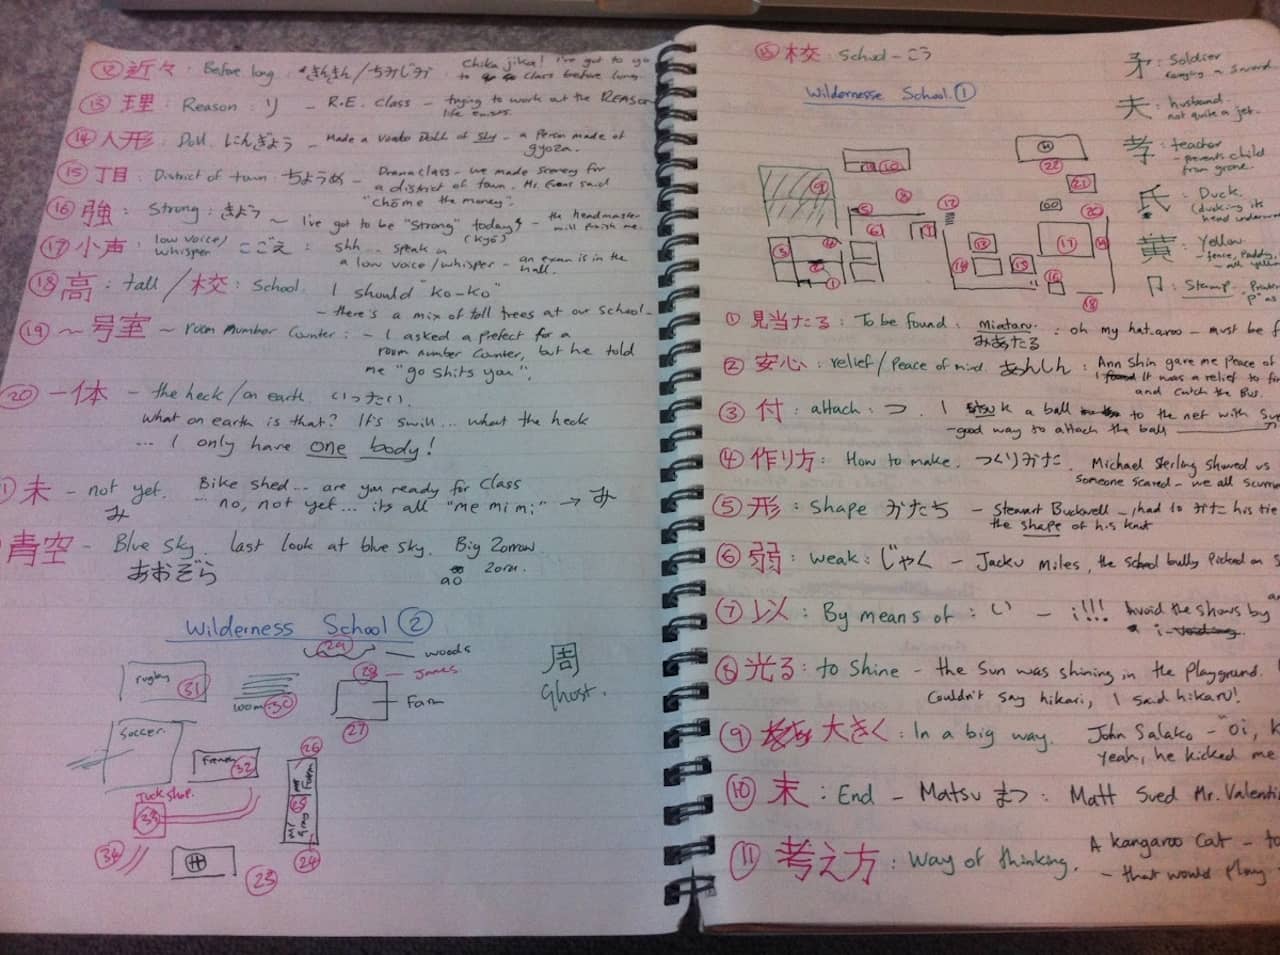 ⑫ 近々 : Before long : きんきん/ちかじか Chika jika! I've got to go
to class before long.
⑬ 理 : Reason : り - R.E. class - trying to work out the REASON
life exists.
⑭ 人形 : Doll にんぎょう - Made a Voodo Doll of sky - a person made of
gyoza.
⑮ 丁目 : District of town ちょうめ - Drama class - we made scenery for
a district of town. Mr. Evans said
"chōme the money".
⑯ 強 : Strong : きょう ~ I've got to be "Strong" today - the headmaster
(kyō) will finish me.
⑰ 小声 : low voice/ whisper こごえ : shh... speak in
a low voice/whisper - an exam is in the
hall.
⑱ 高 : tall / 校 : School. I should "Ko-Ko"
- there's a mix of tall trees at our school.
⑲ ~号室 ~ room number counter : - I asked a prefect for a
room number counter, but he told
me "go shits you".
⑳ 一体 - the heck/on earth. いったい.
What on earth is that? It's swill... what the heck
... I only have one body!
未 - not yet. Bike shed... are you ready for class
み ... no, not yet... its all "me mi mi" → み
青空 - Blue Sky. last look at blue sky. Big Zorrow
あおぞら ao Zora.
Wilderness School ②
woods
29
rugby 31
100m 30
28 - James
Farm
27
周
Ghost.
Soccer.
32
26
Tuck shop.
33
Farm
25
Mr Gray
34
H
23
24
⑮ 校 : School - こう
Wildernesse School. ①
矛 : Soldier
carrying a sword.
夫 : husband
not quite a jet.
孝 : teacher
- prevents child
from
氏 : Duck.
(ducking its
head underwater
黄 : Yellow
- fence, Paddy,
- all yellow
卩 : Stamp.
① 見当たる : To be found : Miataru. : oh my hat-aroo - must be
みあたる
② 安心 : relief/Peace of mind. あんしん : Ann Shin gave me peace of
It was a relief to
and catch the Bus.
③ 付 : attach : つ. I stsuk a ball to the net with
- good way to attach the ball
④ 作り方 : How to make. つくりかた. Michael Sterling showed us
someone scared - we all
⑤ 形 : Shape かたち - Stewart Bucknell - had to かた his tie
the shape of his knot
⑥ 弱 : weak : じゃく - Jacku Miles, the school bully picked on
⑦ 以 : By means of : い - i!!! Avoid the shows by
⑧ 光る : to Shine - the Sun was shining in the playground.
Couldn't say hikari, I said hikaru!
⑨ 大きく : In a big way. John Salako - "oi,
Yeah, he kicked me
⑩ 末 : End - Matsu まつ : Matt Sued Mr. Valentin
⑪ 考え方 : Way of thinking. A kangaroo Cat -
- that would play